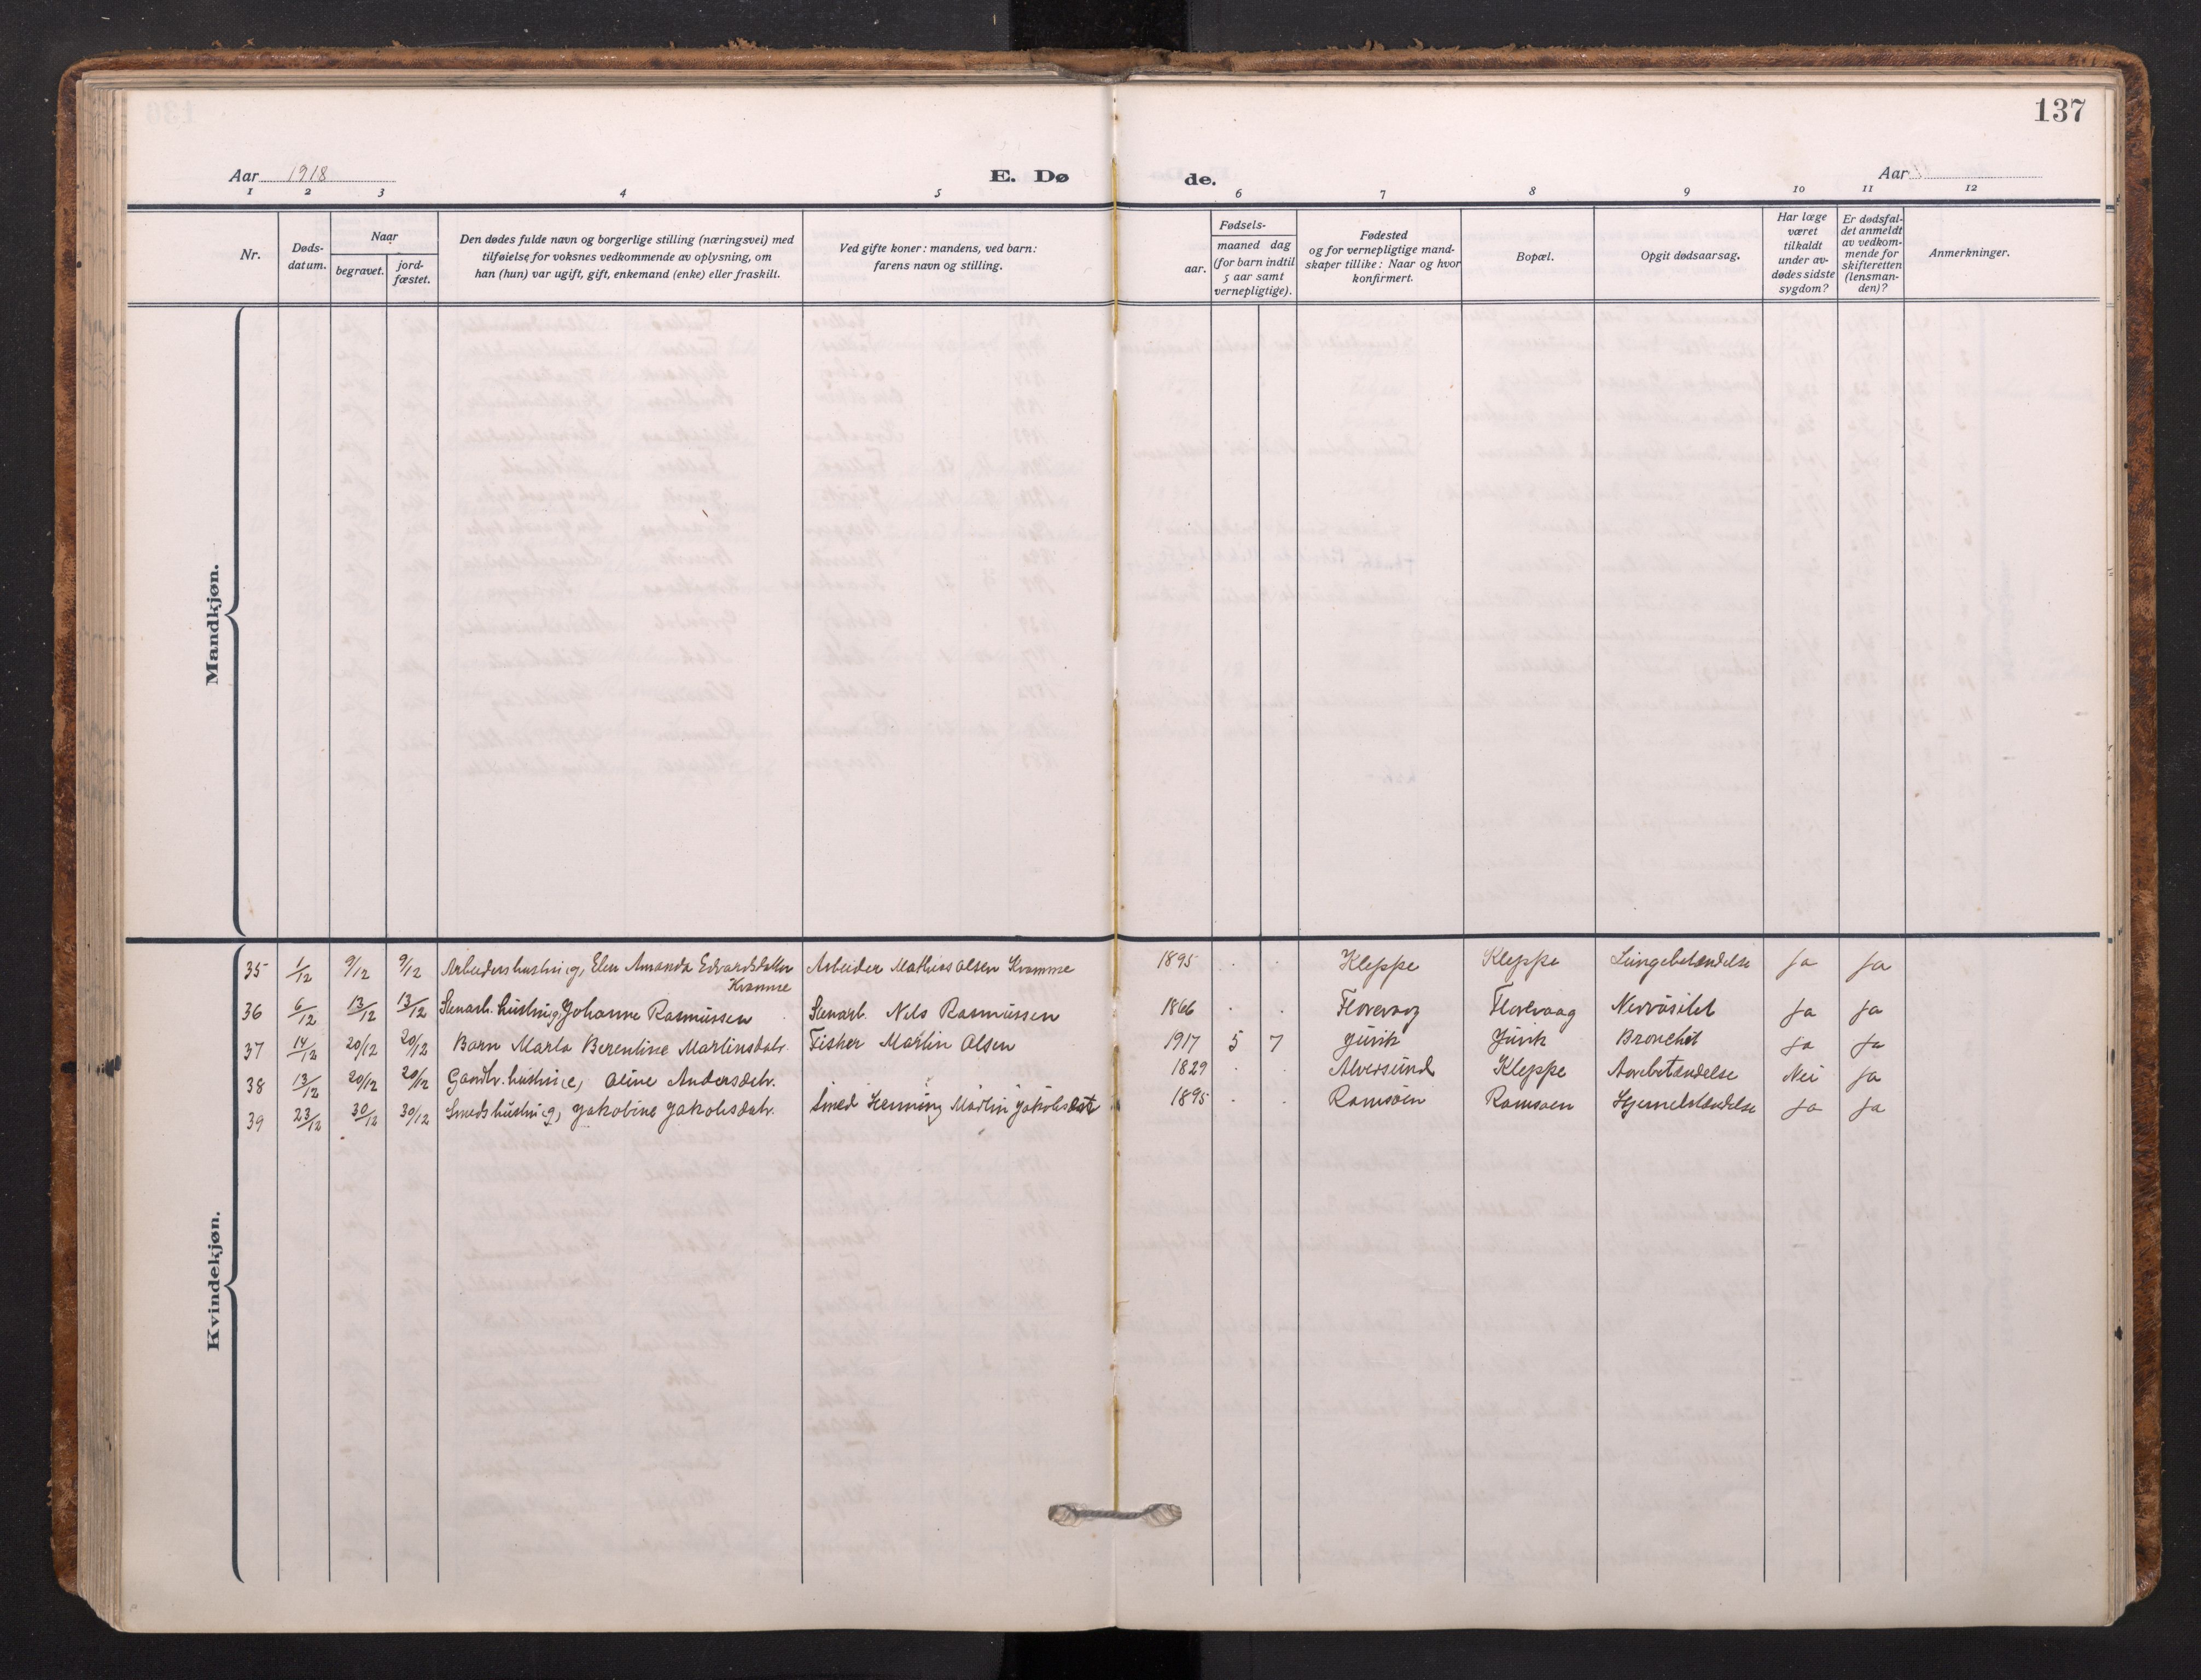 137
Aar 1918 E. Døde. Aar
1 2 3 4 5 6 7 8 9 10 11 12
Nr.
Døds-
datum.
Naar
begravet.
jord-
fæstet.
Den dødes fulde navn og borgerlige stilling (næringsvei) med
tilføielse for voksnes vedkommende av oplysning, om
han (hun) var ugift, gift, enkemand (enke) eller fraskilt.
Ved gifte koner: mandens, ved barn:
farens navn og stilling.
Fødsels-
aar.
maaned dag
(for barn indtil
5 aar samt
vernepligtige).
Fødested
og for vernepligtige mand-
skaper tillike: Naar og hvor
konfirmert.
Bopæl.
Opgit dødsaarsag.
Har læge
været
tilkaldt
under av-
dødes sidste
sygdom?
Er dødsfal-
det anmeldt
av vedkom-
mende for
skifteretten
(lensman-
den)?
Anmerkninger.
Mandkjøn.
Kvindekjøn.
35 1/12 9/12 9/12 Arbeiders hustru (g) Elen Amanda Edvardsdatter Arbeider Mathias Olsen Kvamme 1895 . . Kleppe Kleppe Lungebetændelse Ja Ja
Kvamme
36 6/12 13/12 13/12 Stenarb. hustru (g) Johanne Rasmussen Stenarb. Nels Rasmussen 1866 . . Florevaag Florevaag Nervøsitet Ja Ja
37 14/12 20/12 20/12 Barn Marta Berentine Martinsdatr. Fisker Martin Olsen 1917 5 7 Juvik Juvik Bronchit Ja Ja
38 13/12 20/12 20/12 Gaardbr. hustru (e) Oline Andersdatr. 1829 . . Alversund Kleppe Aarebetændelse Nei Ja
39 23/12 30/12 30/12 Smeds hustru (g) Jakobine Jakobsdatr. Smed Henning Martin Jakobsen 1895 . . Ramsøen Ramsøen Hjernebetændelse Ja Ja